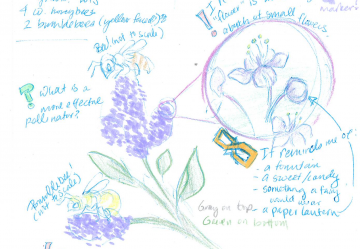 4 W. honeybees
2 bumblebees (yellow faced)?
Bee (not to scale)
! 
"flower" is
a bunch of small flowers
? What is a
more effective
pollinator?
Bumblebee!
(not to scale)
It reminds me of
- a fountain
- a sweet/candy
- something a fairy
would wear
- a paper lantern
Gray on top
Green on bottom